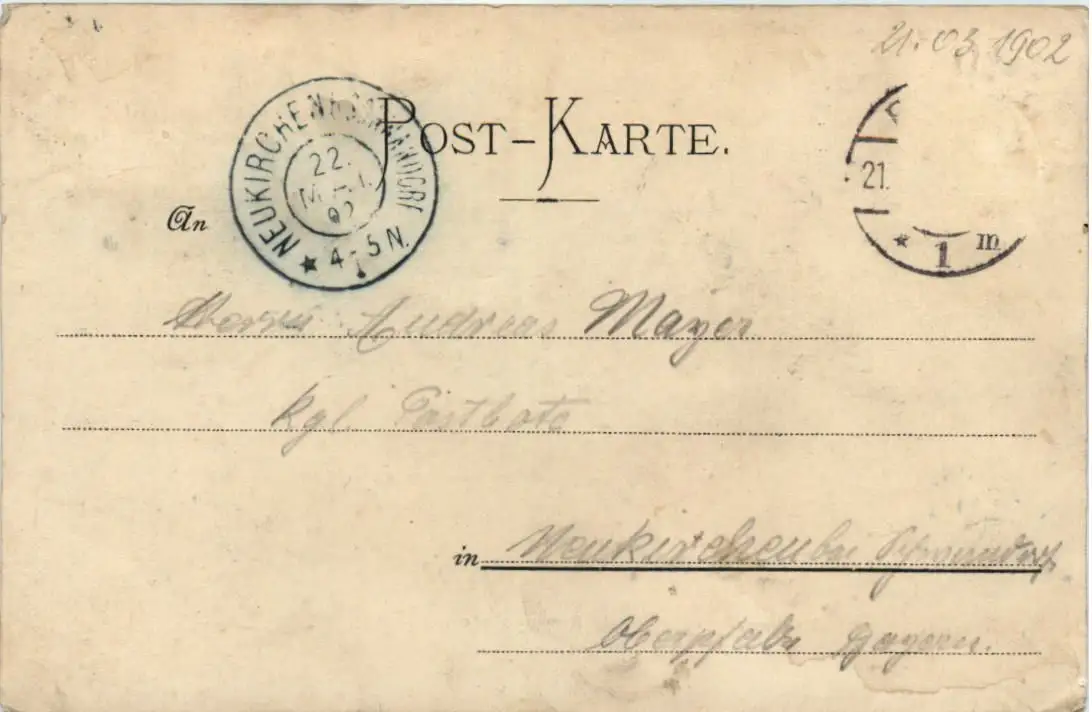 21.03.1902
POST-KARTE.
NEUKIRCHEN SCHWANDORF
22.
MAI
02
4-5N.
21.
1 m
An
Herrn Andreas Mayer
kgl. Postbote
in Neukirchen bei
Oberpfalz Bayern.